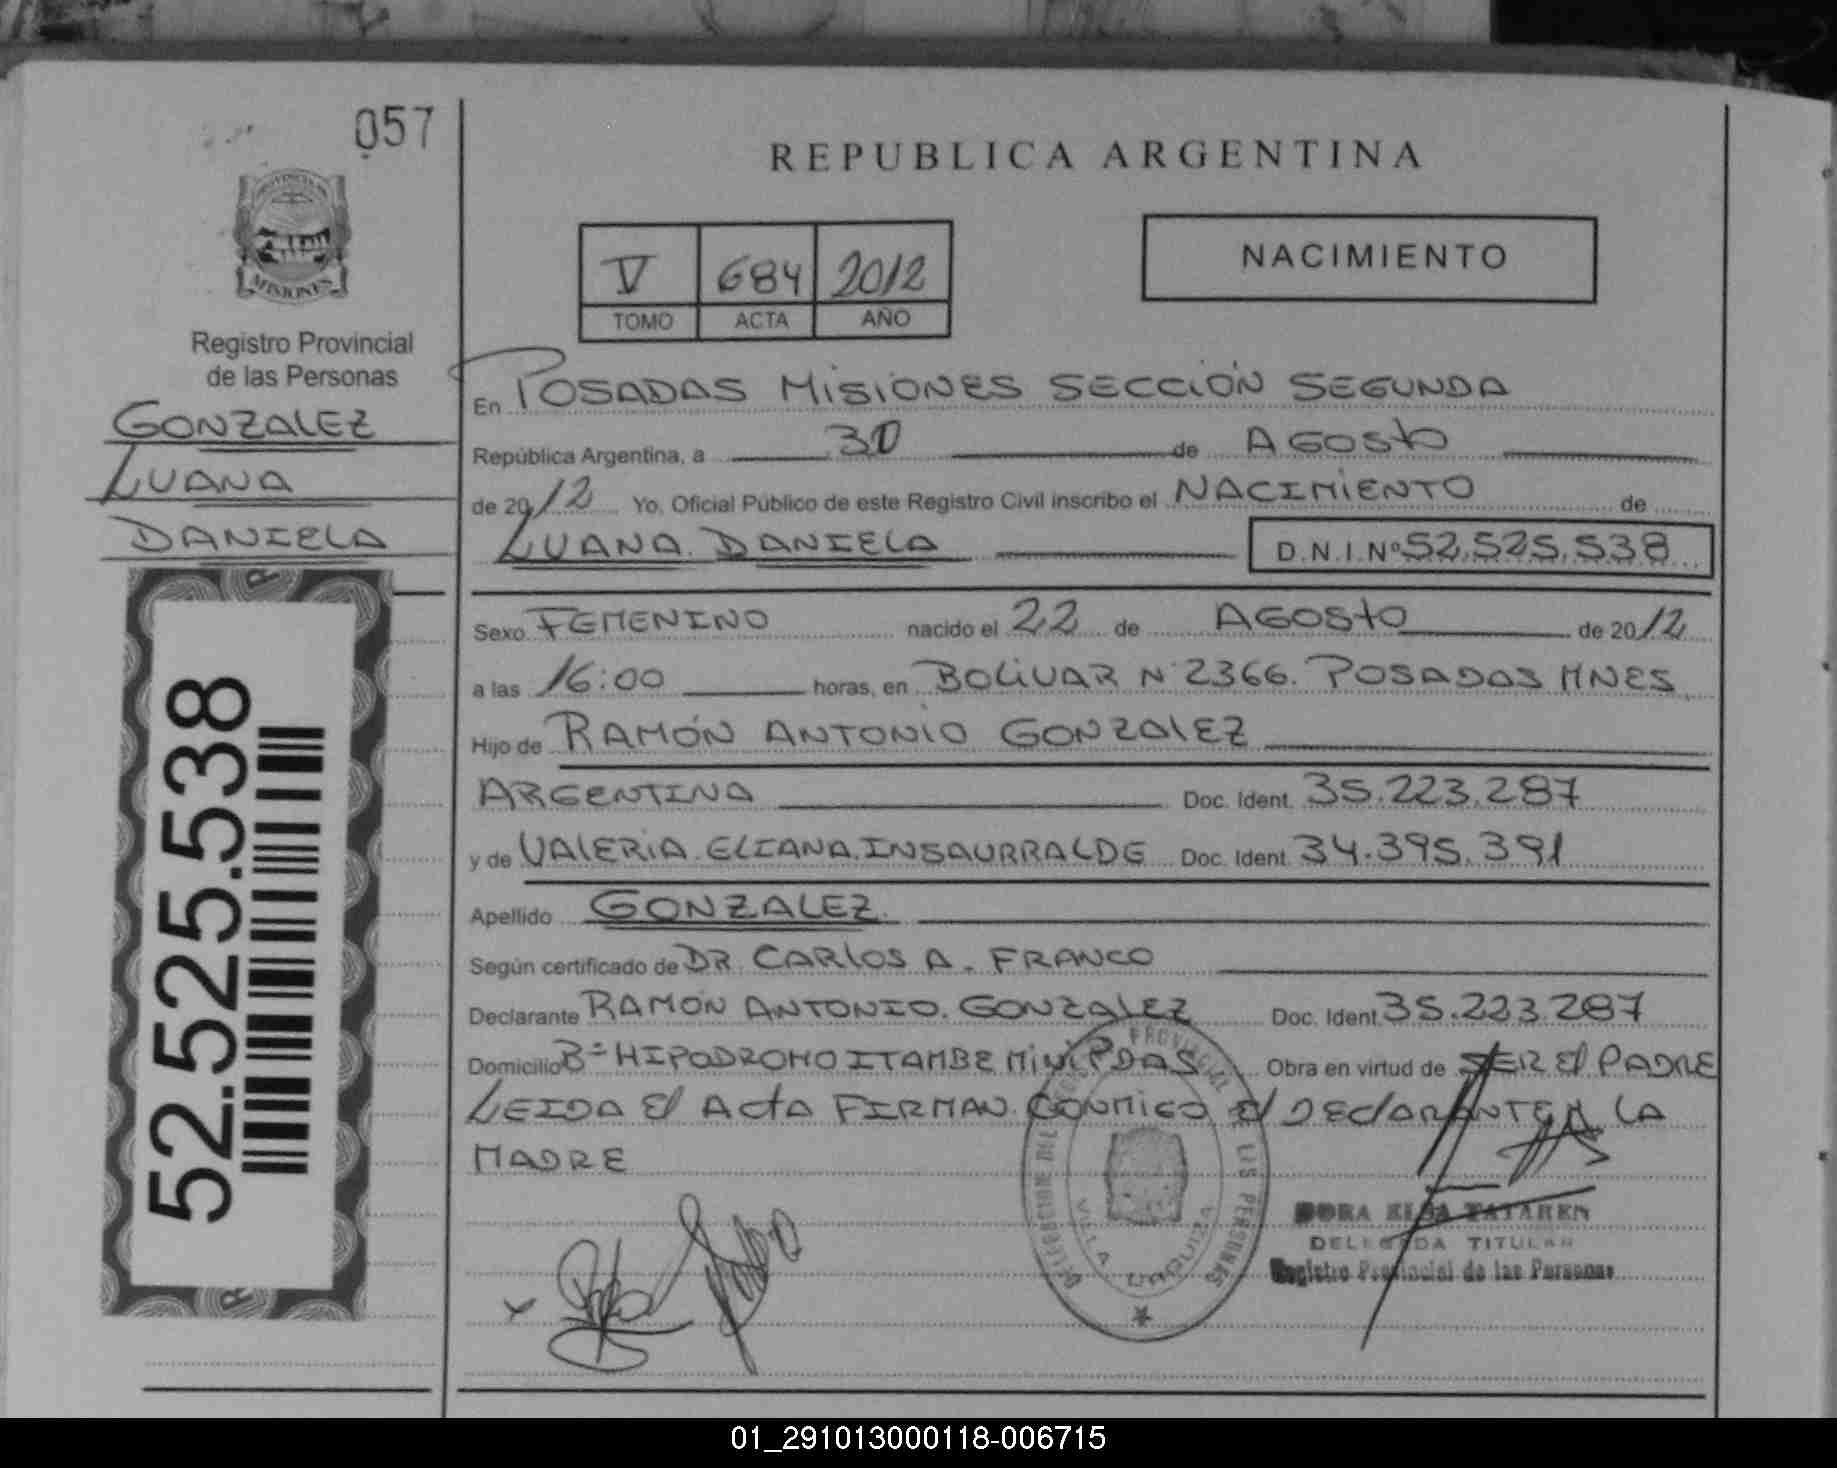 057
PROVINCIA DE
MISIONES
Registro Provincial
de las Personas
GONZALEZ
LUANA
DANIELA
52.525.538
REPUBLICA ARGENTINA
V 684 2012
TOMO ACTA AÑO
NACIMIENTO
En POSADAS MISIONES SECCIÓN SEGUNDA
República Argentina, a 30 de AGOSTO
de 2012 Yo, Oficial Público de este Registro Civil inscribo el NACIMIENTO de
LUANA DANIELA D.N.I. Nº 52.525.538
Sexo FEMENINO nacido el 22 de AGOSTO de 2012
a las 16:00 horas, en BOLIVAR Nº 2366. POSADAS MNES
Hijo de RAMÓN ANTONIO GONZALEZ
ARGENTINA Doc. Ident. 35.223.287
y de VALERIA ELIANA INSAURRALDE Doc. Ident. 34.395.391
Apellido GONZALEZ
Según certificado de DR. CARLOS A. FRANCO
Declarante RAMÓN ANTONIO GONZALEZ Doc. Ident. 35.223.287
Domicilio Bº HIPODROMO ITAMBE MINI PDAS Obra en virtud de SER El PADRE
LEIDA El ActA FIRMAN CONMIGO El DEClARANTE Y LA
MADRE
DELEGACION DEL REGISTRO PROVINCIAL DE LAS PERSONAS
VILLA URQUIZA
DORA ELSA TATAREN
DELEGADA TITULAR
Registro Provincial de las Personas
01_291013000118-006715